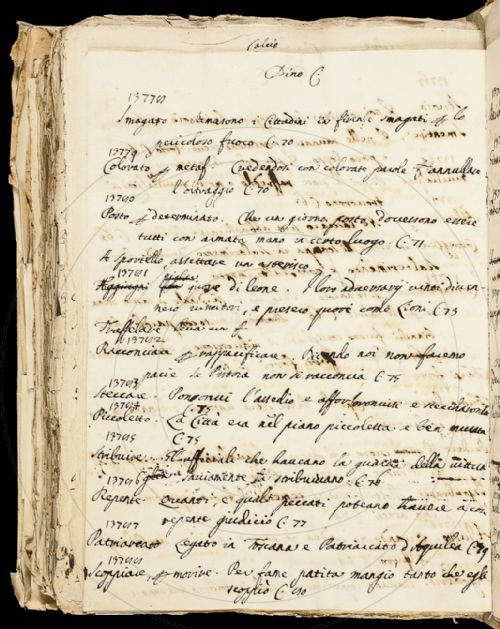 Calcio
Dino C.
13778
Smagato. Rimasono i Cittadini in firenze smagati p lo
pericoloso fuoco C. 70
13779
Colorato p metaf. Credendosi con colorate parole annullare
l'oltraggio C. 70
13780
Posto p determinato. Che un giorno posto dovessono essere
tutti con armata mano in certo luogo. C. 71
A sportello assettare un asterisco
13781
Aggiugni cuore di leone. I loro adversarj vinti diven-
nero vincitori, e presero quore come Lioni C. 73
Trafelare
13782
Racconciare p rappacificare. Dicendo noi non faremo
pacie se Pistoia non si racconcia C. 75
13783
Steccare. Pononvi l'assedio e afforzaronvisi e steccharonla
13784 C. 75
Piccoletto. La Città era nel piano piccoletta, e ben murata
13785 C. 75
Scribuire. Gli ufficiali che haveano la guardia della
13786 saviamente la scribuivano C. 76
Repente. Quanti, e quali peccati poteano havere a così
repente giudicio C. 77
13787
Patriarcato Legato in Toscana e Patriarcato d'Aquilea C. 79
13788
Scoppiare, p morire. Per fame patita mangiò tanto che egli
scoppiò C. 80